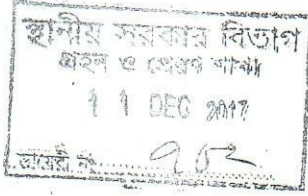 স্থানীয় সরকার বিভাগ
গ্রহণ ও প্রেরণ শাখা
11 DEC 2017
ডায়েরী নং